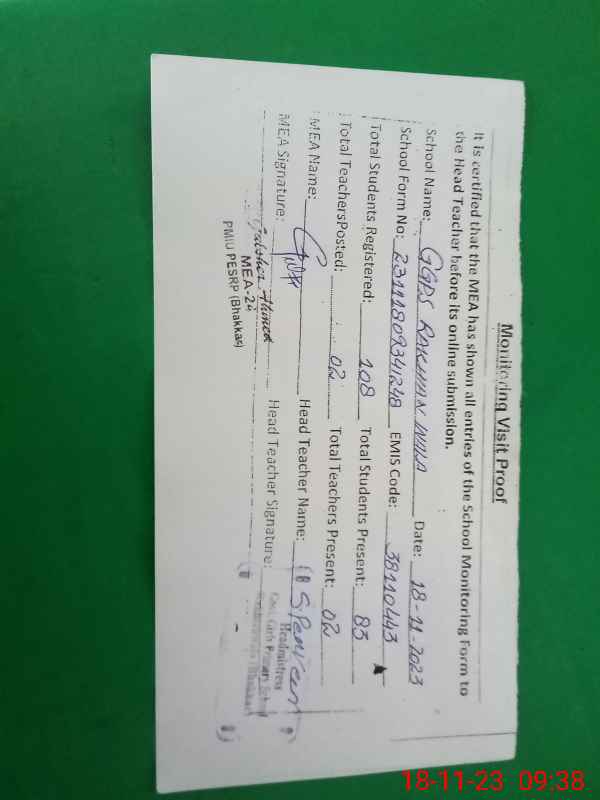 Monitoring Visit Proof
It is certified that the MEA has shown all entries of the School Monitoring Form to
the Head Teacher before its online submission.
School Name: GGPS RAKHAN WALA Date: 18-11-2023
School Form No: 23111809341248 EMIS Code: 38110443
Total Students Registered: 108 Total Students Present: 83
Total TeachersPosted: 02 Total Teachers Present: 02
MEA Name: Head Teacher Name:
MEA Signature: Head Teacher Signature:
Gulsher Ahmed
MEA-24
PMIU PESRP (Bhakkar)
Headmistress
Govt. Girls Primary School
(Bhakkar)
18-11-23 09:38